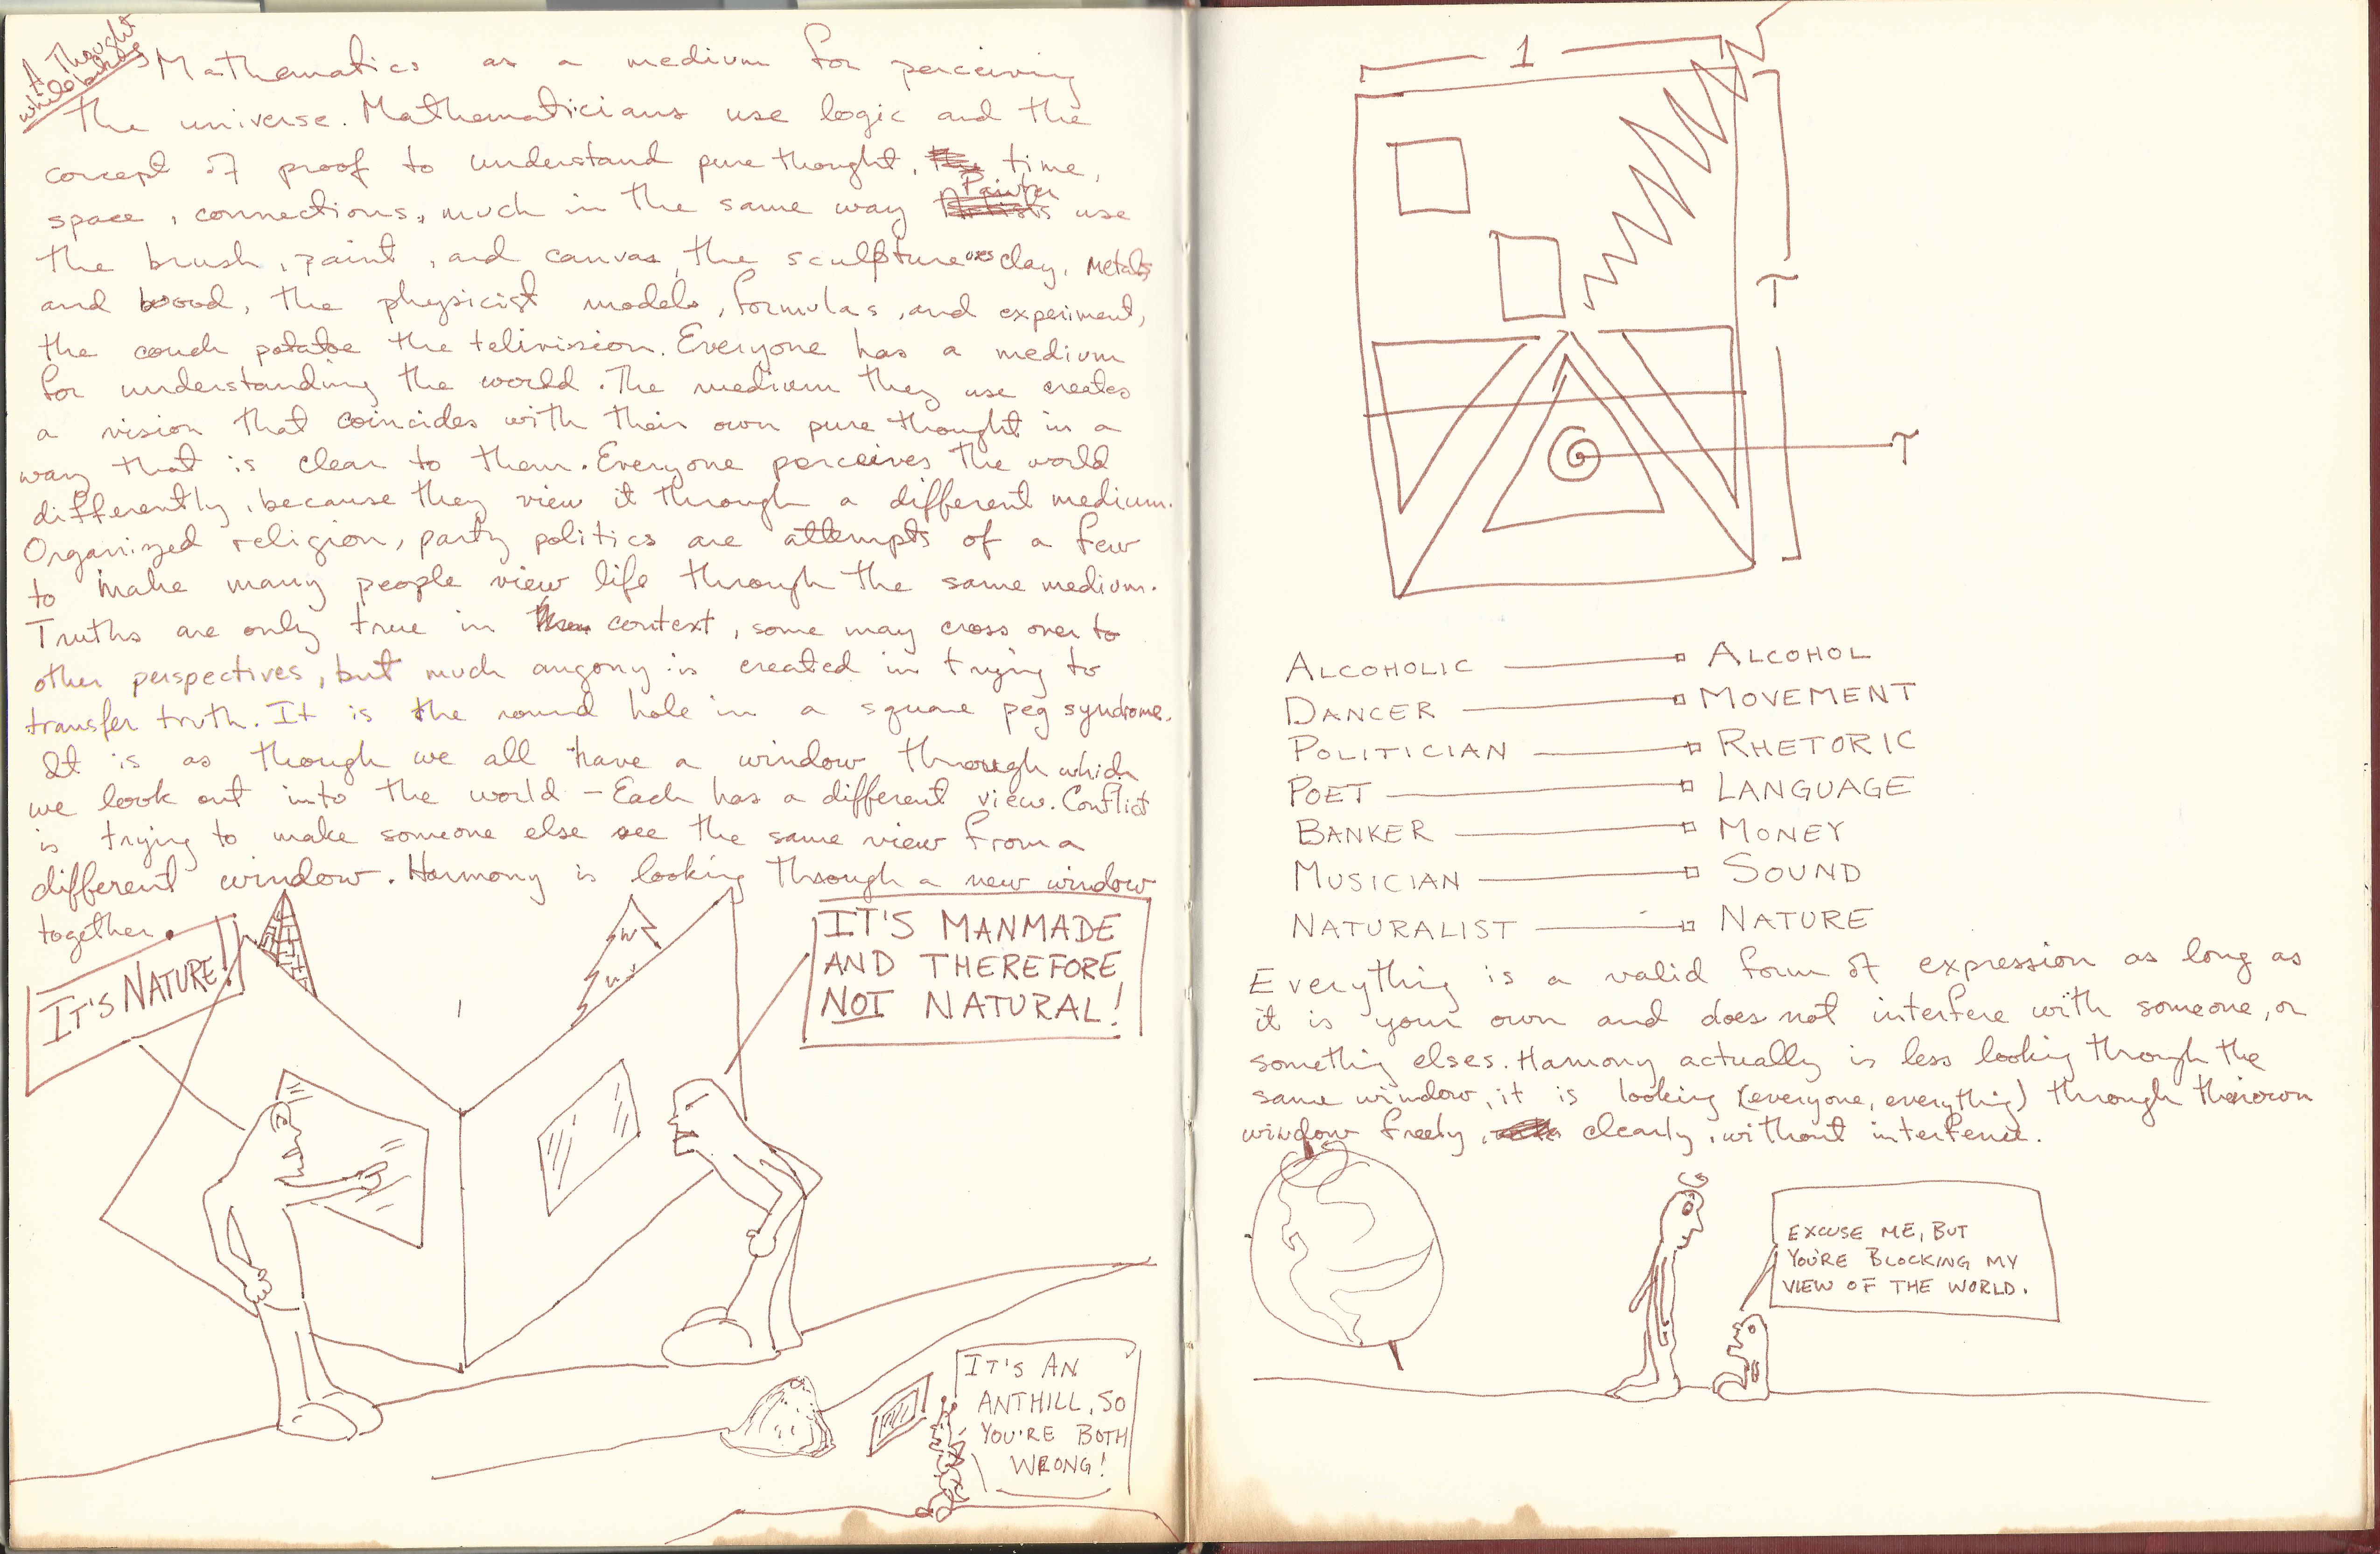 A Thought
while baking
Mathematics as a medium for perceiving
the universe. Mathematicians use logic and the
concept of proof to understand pure thought, time,
space, connections, much in the same way Painter use
the brush, paint, and canvas, the sculpture uses clay, metals
and wood, the physicist models, formulas, and experiment,
the couch potatoe the telivision. Everyone has a medium
for understanding the world. The medium they use creates
a vision that coincides with their own pure thought in a
way that is clear to them. Everyone perceives the world
differently, because they view it through a different medium.
Organized religion, party politics are attempts of a few
to make many people view life through the same medium.
Truths are only true in context, some may cross over to
other perspectives, but much angony is created in trying to
transfer truth. It is the round hole in a square peg syndrome.
It is as though we all have a window through which
we look out into the world - Each has a different view. Conflict
is trying to make someone else see the same view from a
different window. Harmony is looking through a new window
together.
IT'S NATURE!
IT'S MANMADE
AND THEREFORE
NOT NATURAL!
IT'S AN
ANTHILL, SO
YOU'RE BOTH
WRONG!
1
T
T
ALCOHOLIC ALCOHOL
DANCER MOVEMENT
POLITICIAN RHETORIC
POET LANGUAGE
BANKER MONEY
MUSICIAN SOUND
NATURALIST NATURE
Everything is a valid form of expression as long as
it is your own and does not interfere with someone, or
something elses. Harmony actually is less looking through the
same window, it is looking (everyone, everything) through their own
window freely, clearly, without interfence.
EXCUSE ME, BUT
YOU'RE BLOCKING MY
VIEW OF THE WORLD.